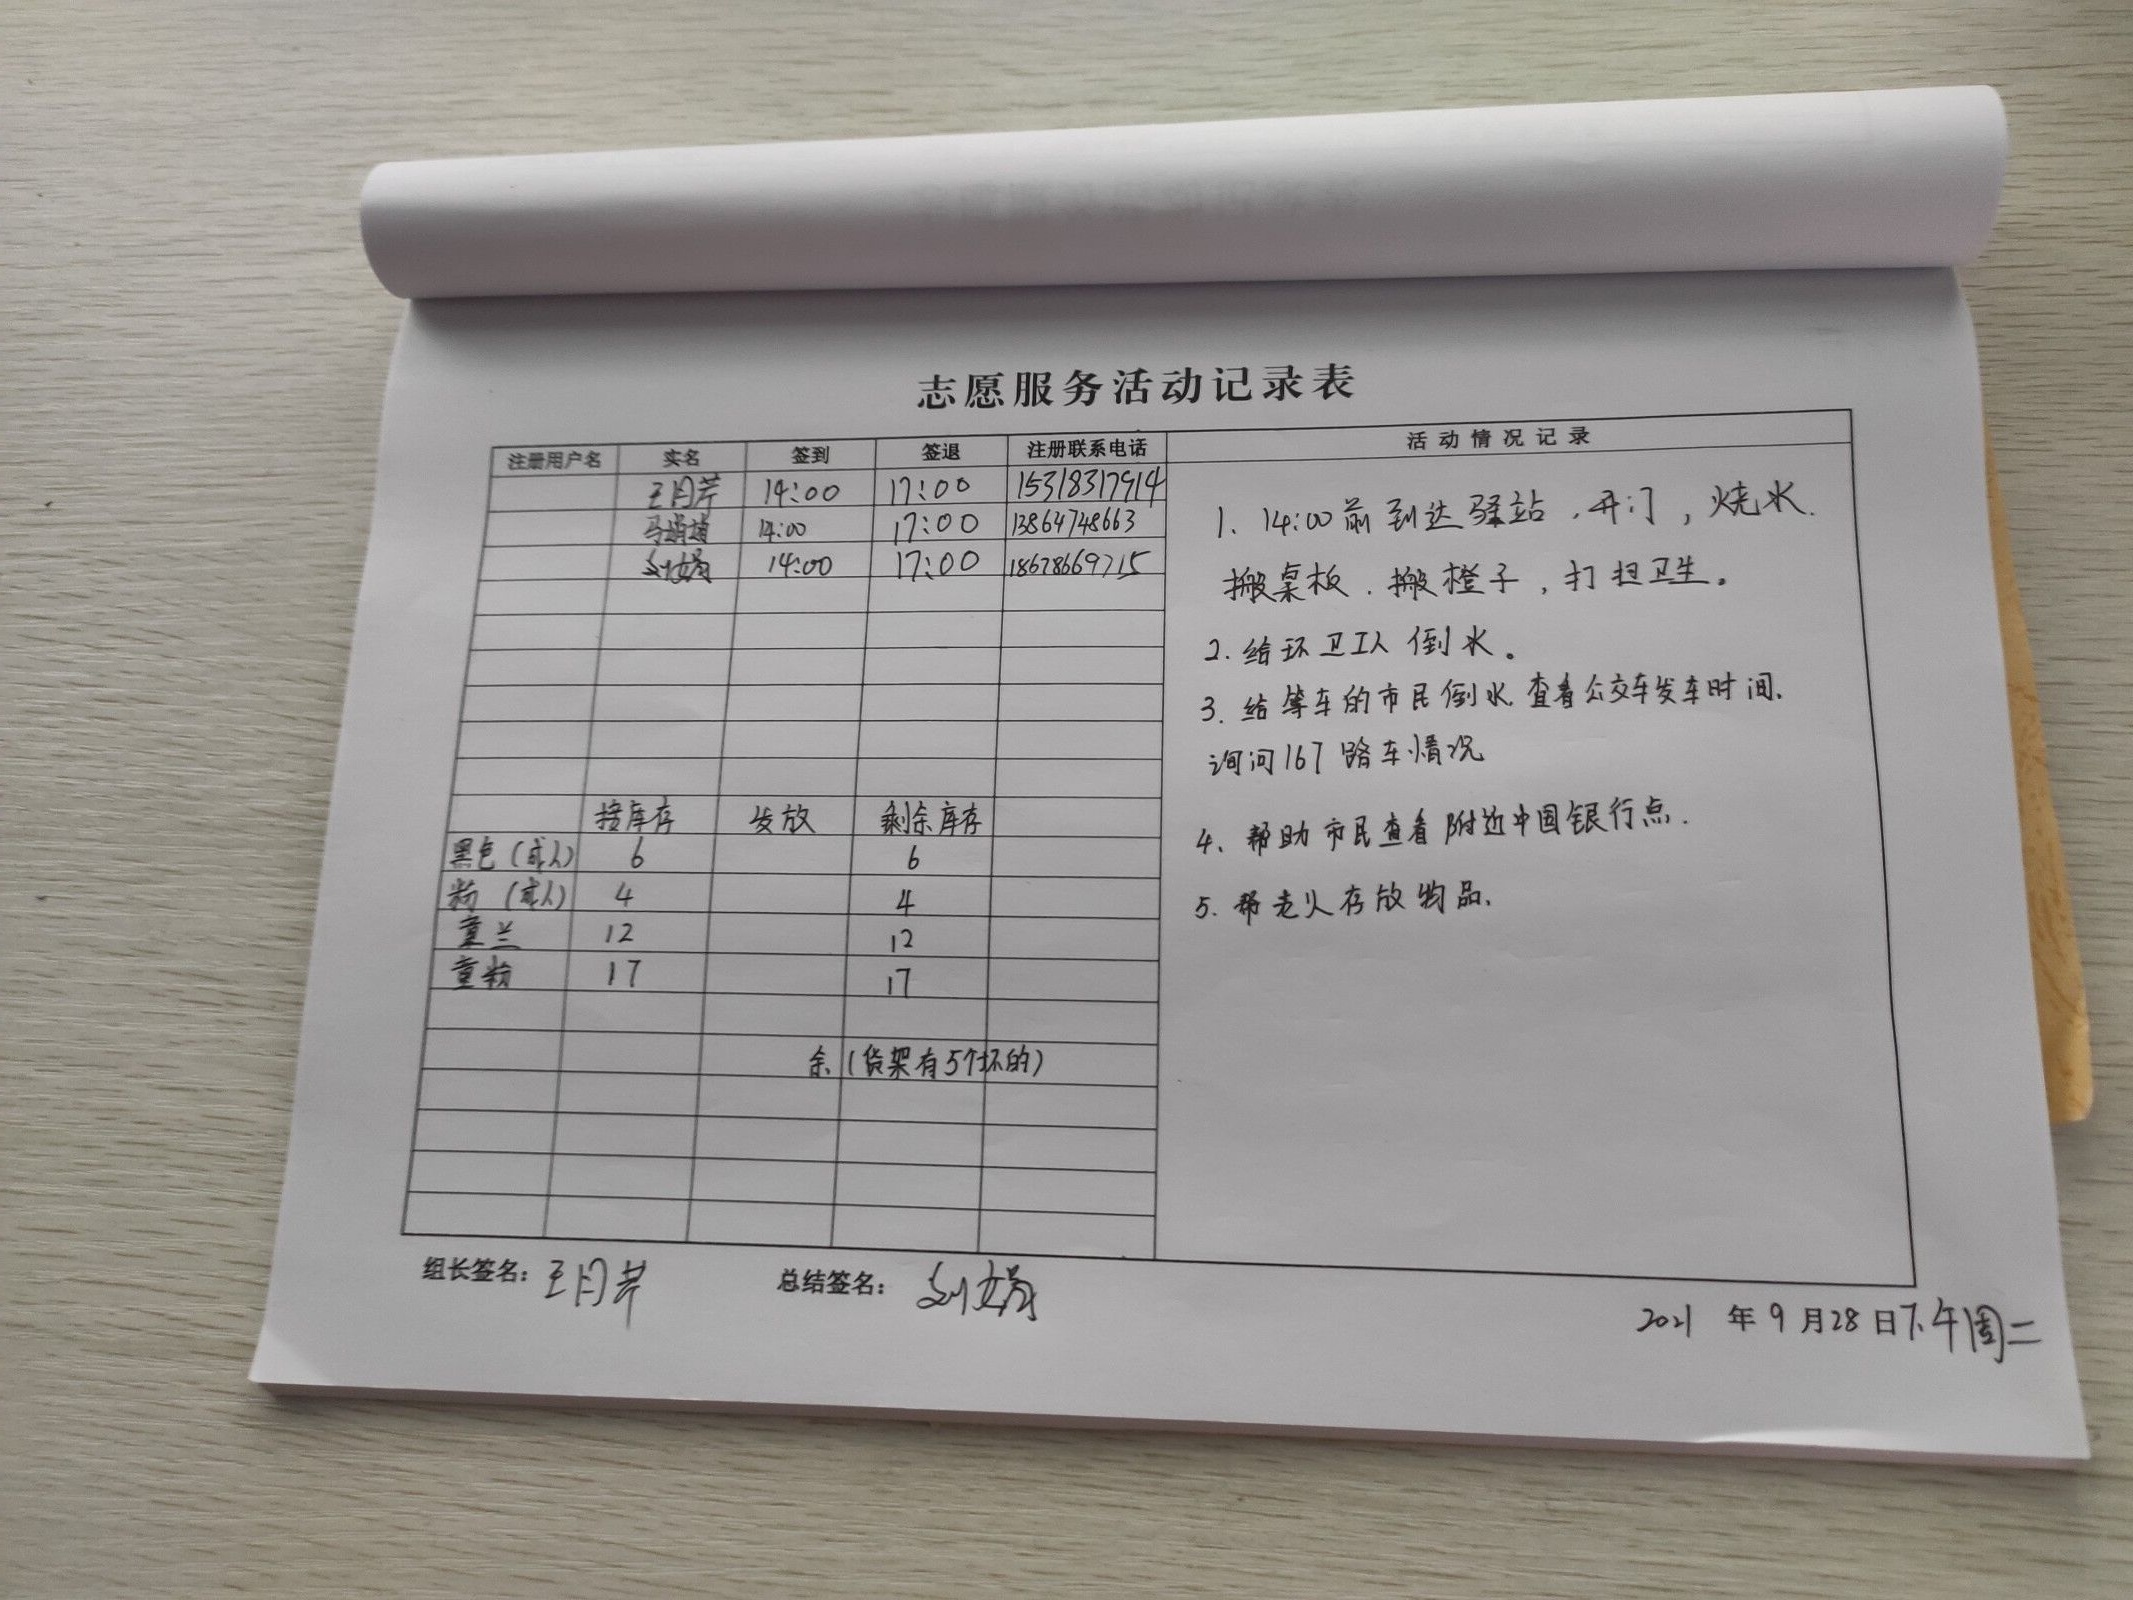 志愿服务活动记录表
注册用户名 实名 签到 签退 注册联系电话 活动情况记录
王月芹 14:00 17:00 15318317914
马娟娟 14:00 17:00 13864748663
刘娟 14:00 17:00 18678669715
接库存 发放 剩余库存
黑色(成人) 6 6
粉(成人) 4 4
童兰 12 12
童粉 17 17
余(货架有5个坏的)
1、14:00前到达驿站,开门,烧水.
搬桌板.搬橙子,打扫卫生。
2.给环卫工人倒水。
3.给等车的市民倒水.查看公交车发车时间.
询问167路车情况
4、帮助市民查看附近中国银行点.
5.帮老人存放物品.
组长签名:王月芹 总结签名:刘娟
2021年9月28日下午周二